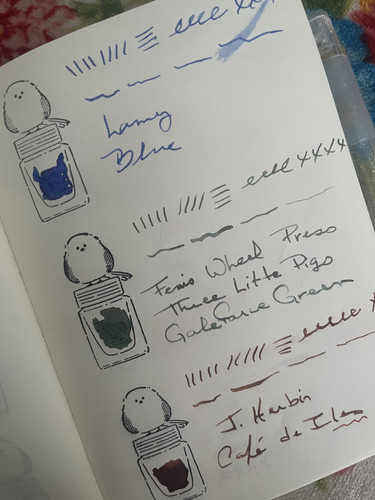 Lamy
Blue
Feris Wheel Press
Three Little Pigs
Galeforce Green
J. Herbin
Café de Iles